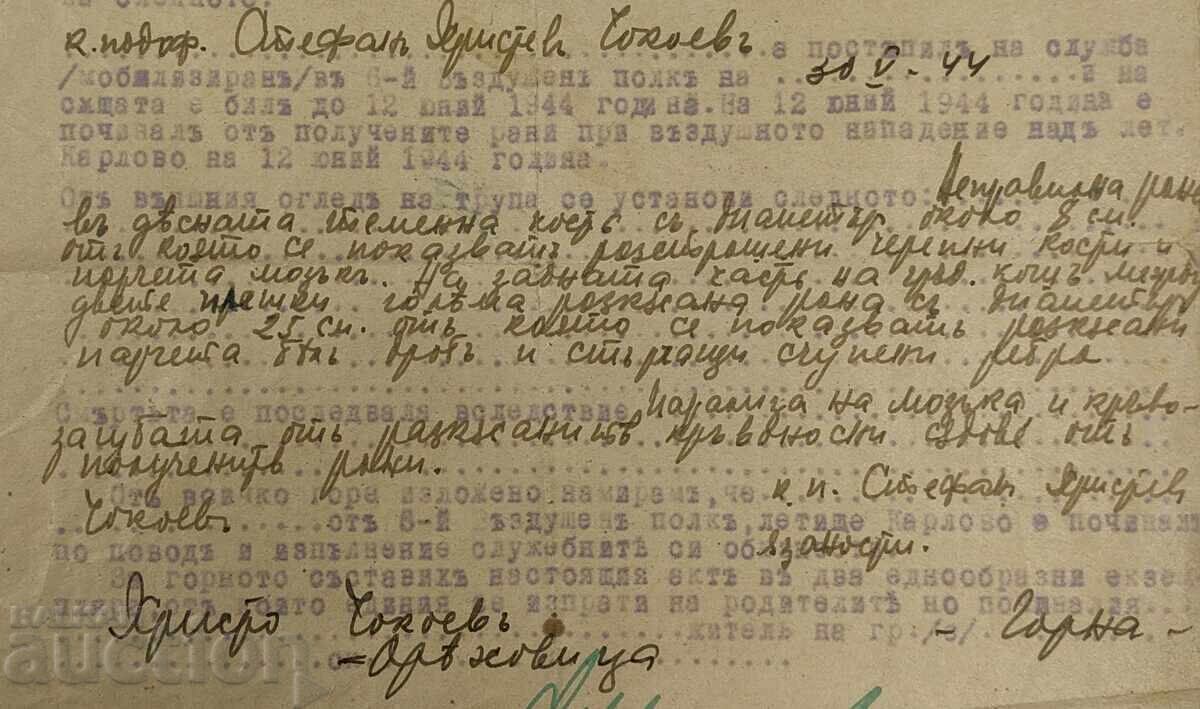 на следното:
к. подоф. Стефанъ Христевъ Чокоевъ е постѫпилъ на служба
/мобилизиранъ/въ 6-й въздушенъ полкъ на 30 V. 44 и на
сѫщата е билъ до 12 юний 1944 година. На 12 юний 1944 година е
починалъ отъ получените рани при въздушното нападение надъ лет.
Карлово на 12 юний 1944 година.
Отъ външния огледъ на трупа се установи следното: Неправилна рана
въ дѣсната теменна кость съ диаметъръ около 8 см.
отъ която се показватъ разтрошени черепни кости и
парчета мозъкъ. На задната часть на гръд. кошъ между
двете плешки голѣма разкѫсана рана съ диаметъръ
около 25 см. отъ която се показватъ разкѫсани
парчета бѣлъ дробъ и стърчащи счупени ребра
Смъртьта е последвала вследствие Парализа на мозъка и крѫво-
загубата отъ разкѫсанитѣ кръвоносни сѫдове отъ
полученитѣ рани.
Отъ всичко горе изложено намирамъ, че к. п. Стефанъ Христевъ
Чокоевъ отъ 6-й въздушенъ полкъ, летище Карлово е починалъ
по поводъ и изпълнение служебнитѣ си обязаности.
За горното съставихъ настоящия актъ въ два еднообразни екзем
пляра отъ които единия се изпрати на родителитѣ но починалия
Христо Чокоевъ жителъ на гр./с/. - Горна -
- Орѣховица
auction